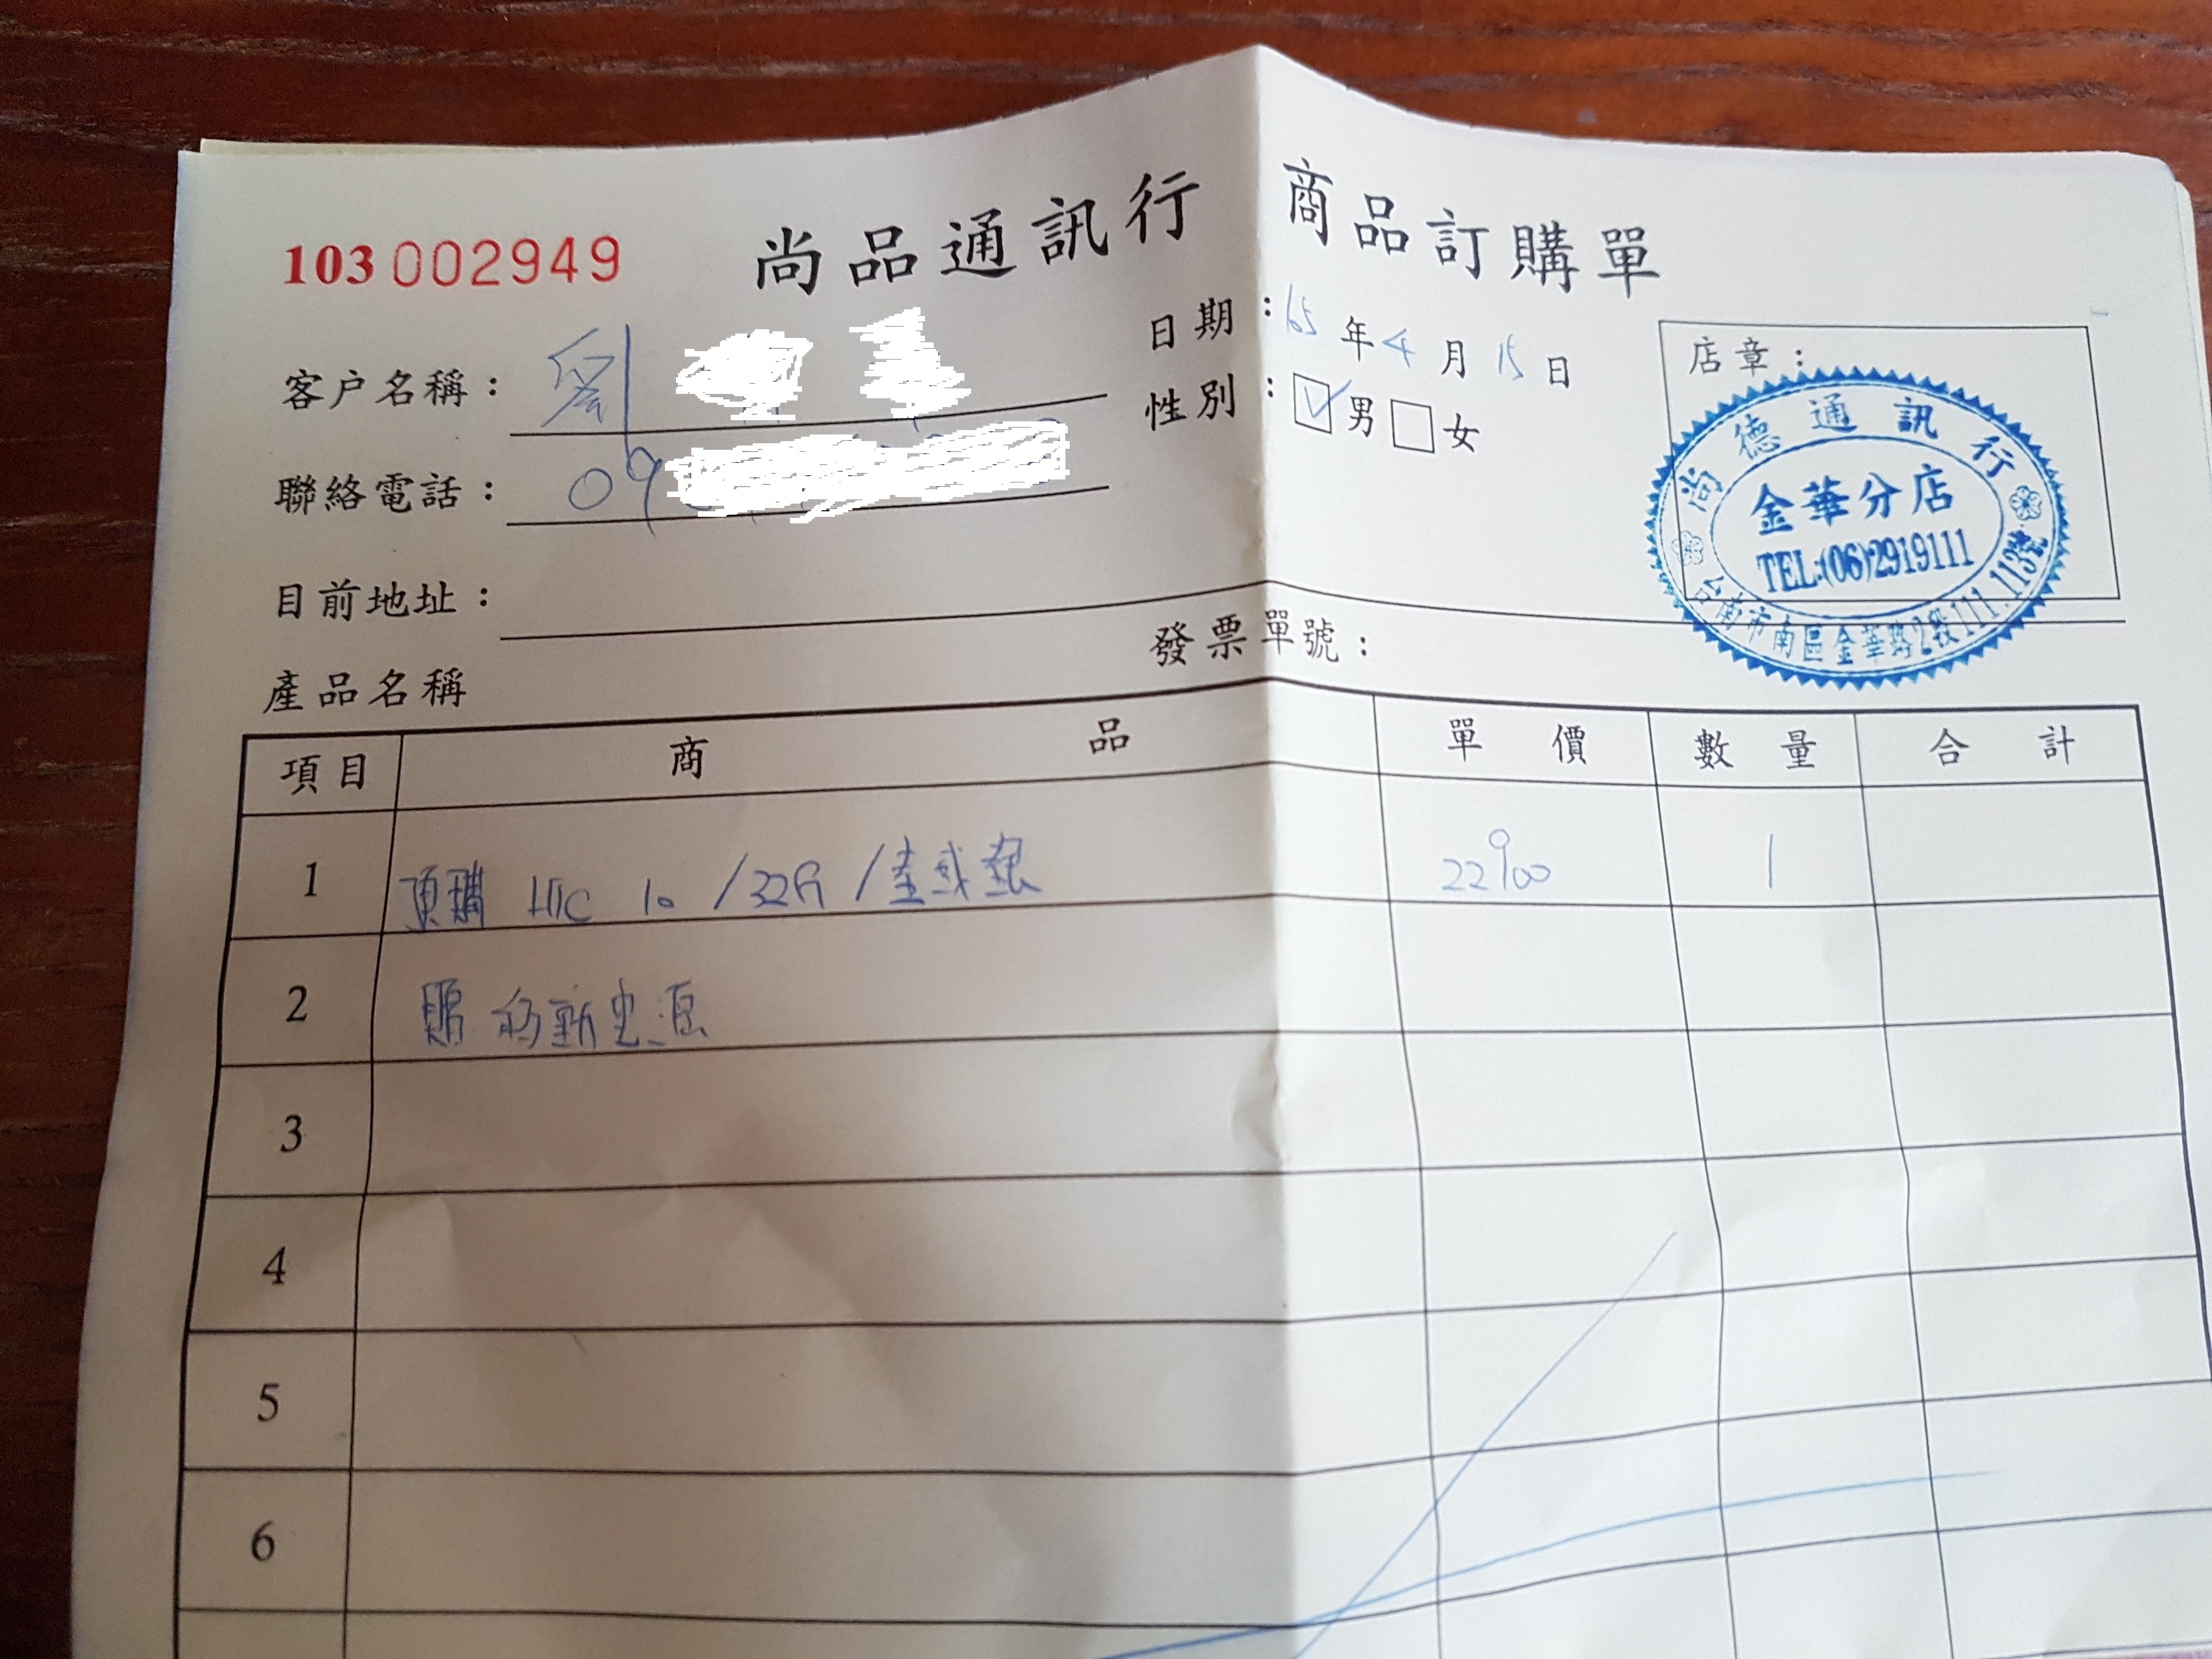 103 002949
尚品通訊行 商品訂購單
客戶名稱：劉
日期：105年4月15日
聯絡電話：09
性別：☑男☐女
店章：
尚德通訊行
金華分店
TEL:(06)2919111
台南市南區金華路2段111.113號
目前地址：
發票單號：
產品名稱
項目 商品 單價 數量 合計
1 預購 HTC 10 /32G / 22900 1
2 贈 行動電源
3
4
5
6